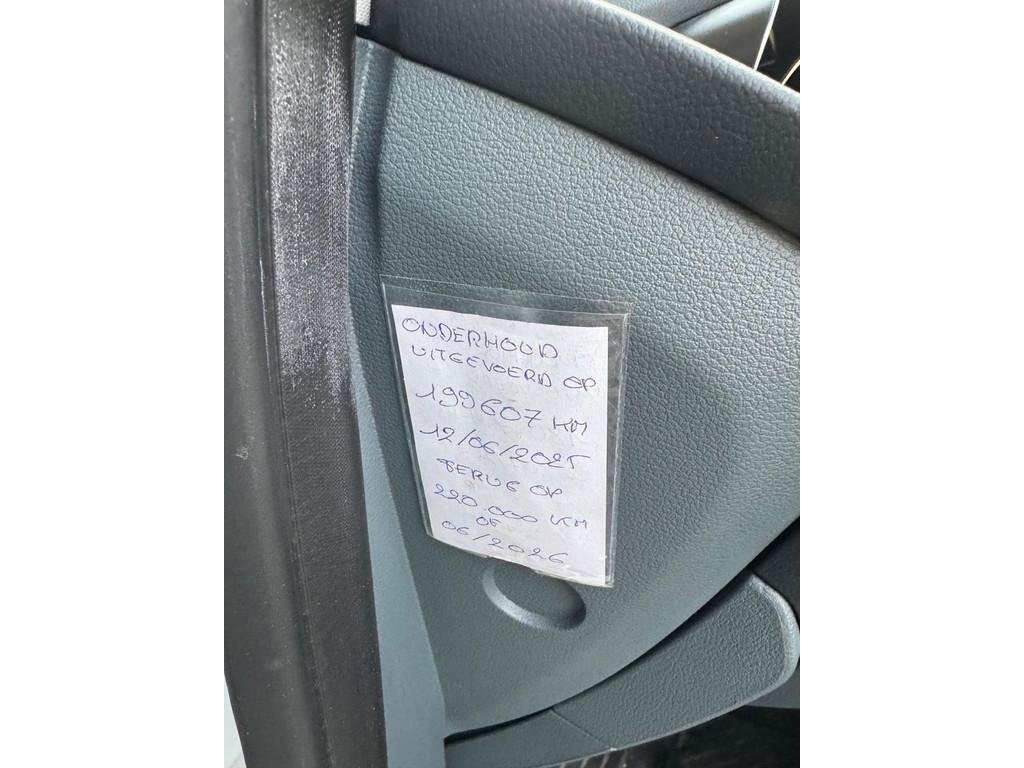 ONDERHOUD
UITGEVOERD OP
199607 KM
12/06/2025
TERUG OP
220.000 KM
OF
06/2026